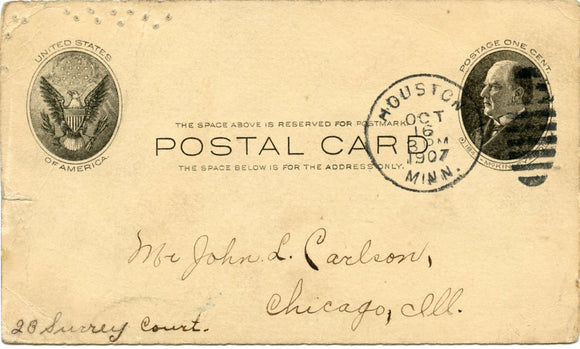 UNITED STATES
OF AMERICA.
POSTAGE ONE CENT.
HOUSTON
OCT
16
PM
1907
MINN.
THE SPACE ABOVE IS RESERVED FOR POSTMARK.
POSTAL CARD
THE SPACE BELOW IS FOR THE ADDRESS ONLY.
Mr John L. Carlson,
Chicago, Ill.
28 Surrey Court.